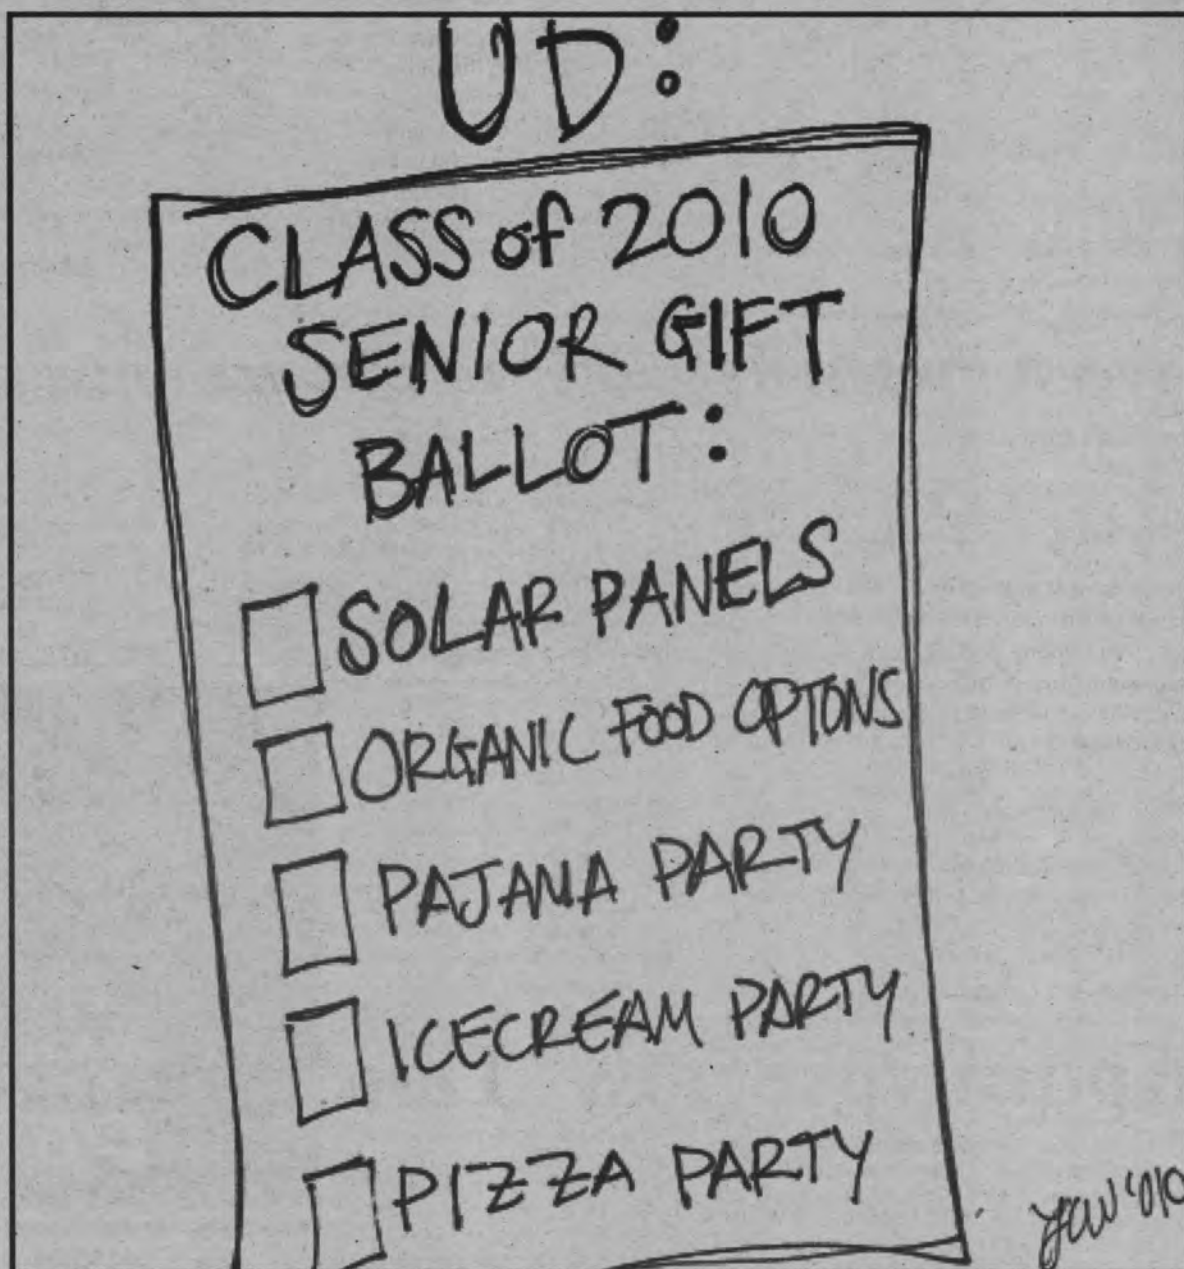 UD:
CLASS of 2010
SENIOR GIFT
BALLOT:
SOLAR PANELS
ORGANIC FOOD OPTONS
PAJAMA PARTY
ICECREAM PARTY
PIZZA PARTY